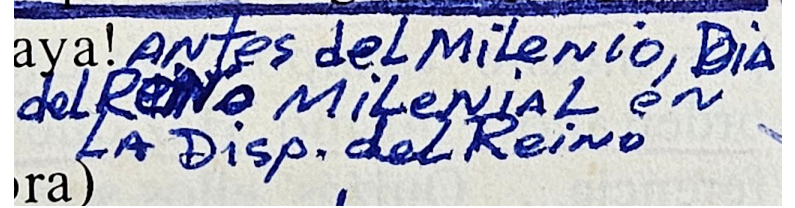 aya! ANTES del MiLENiO, DiA
del REiNO MiLENiAL EN
LA Disp. del ReiNO
ora)